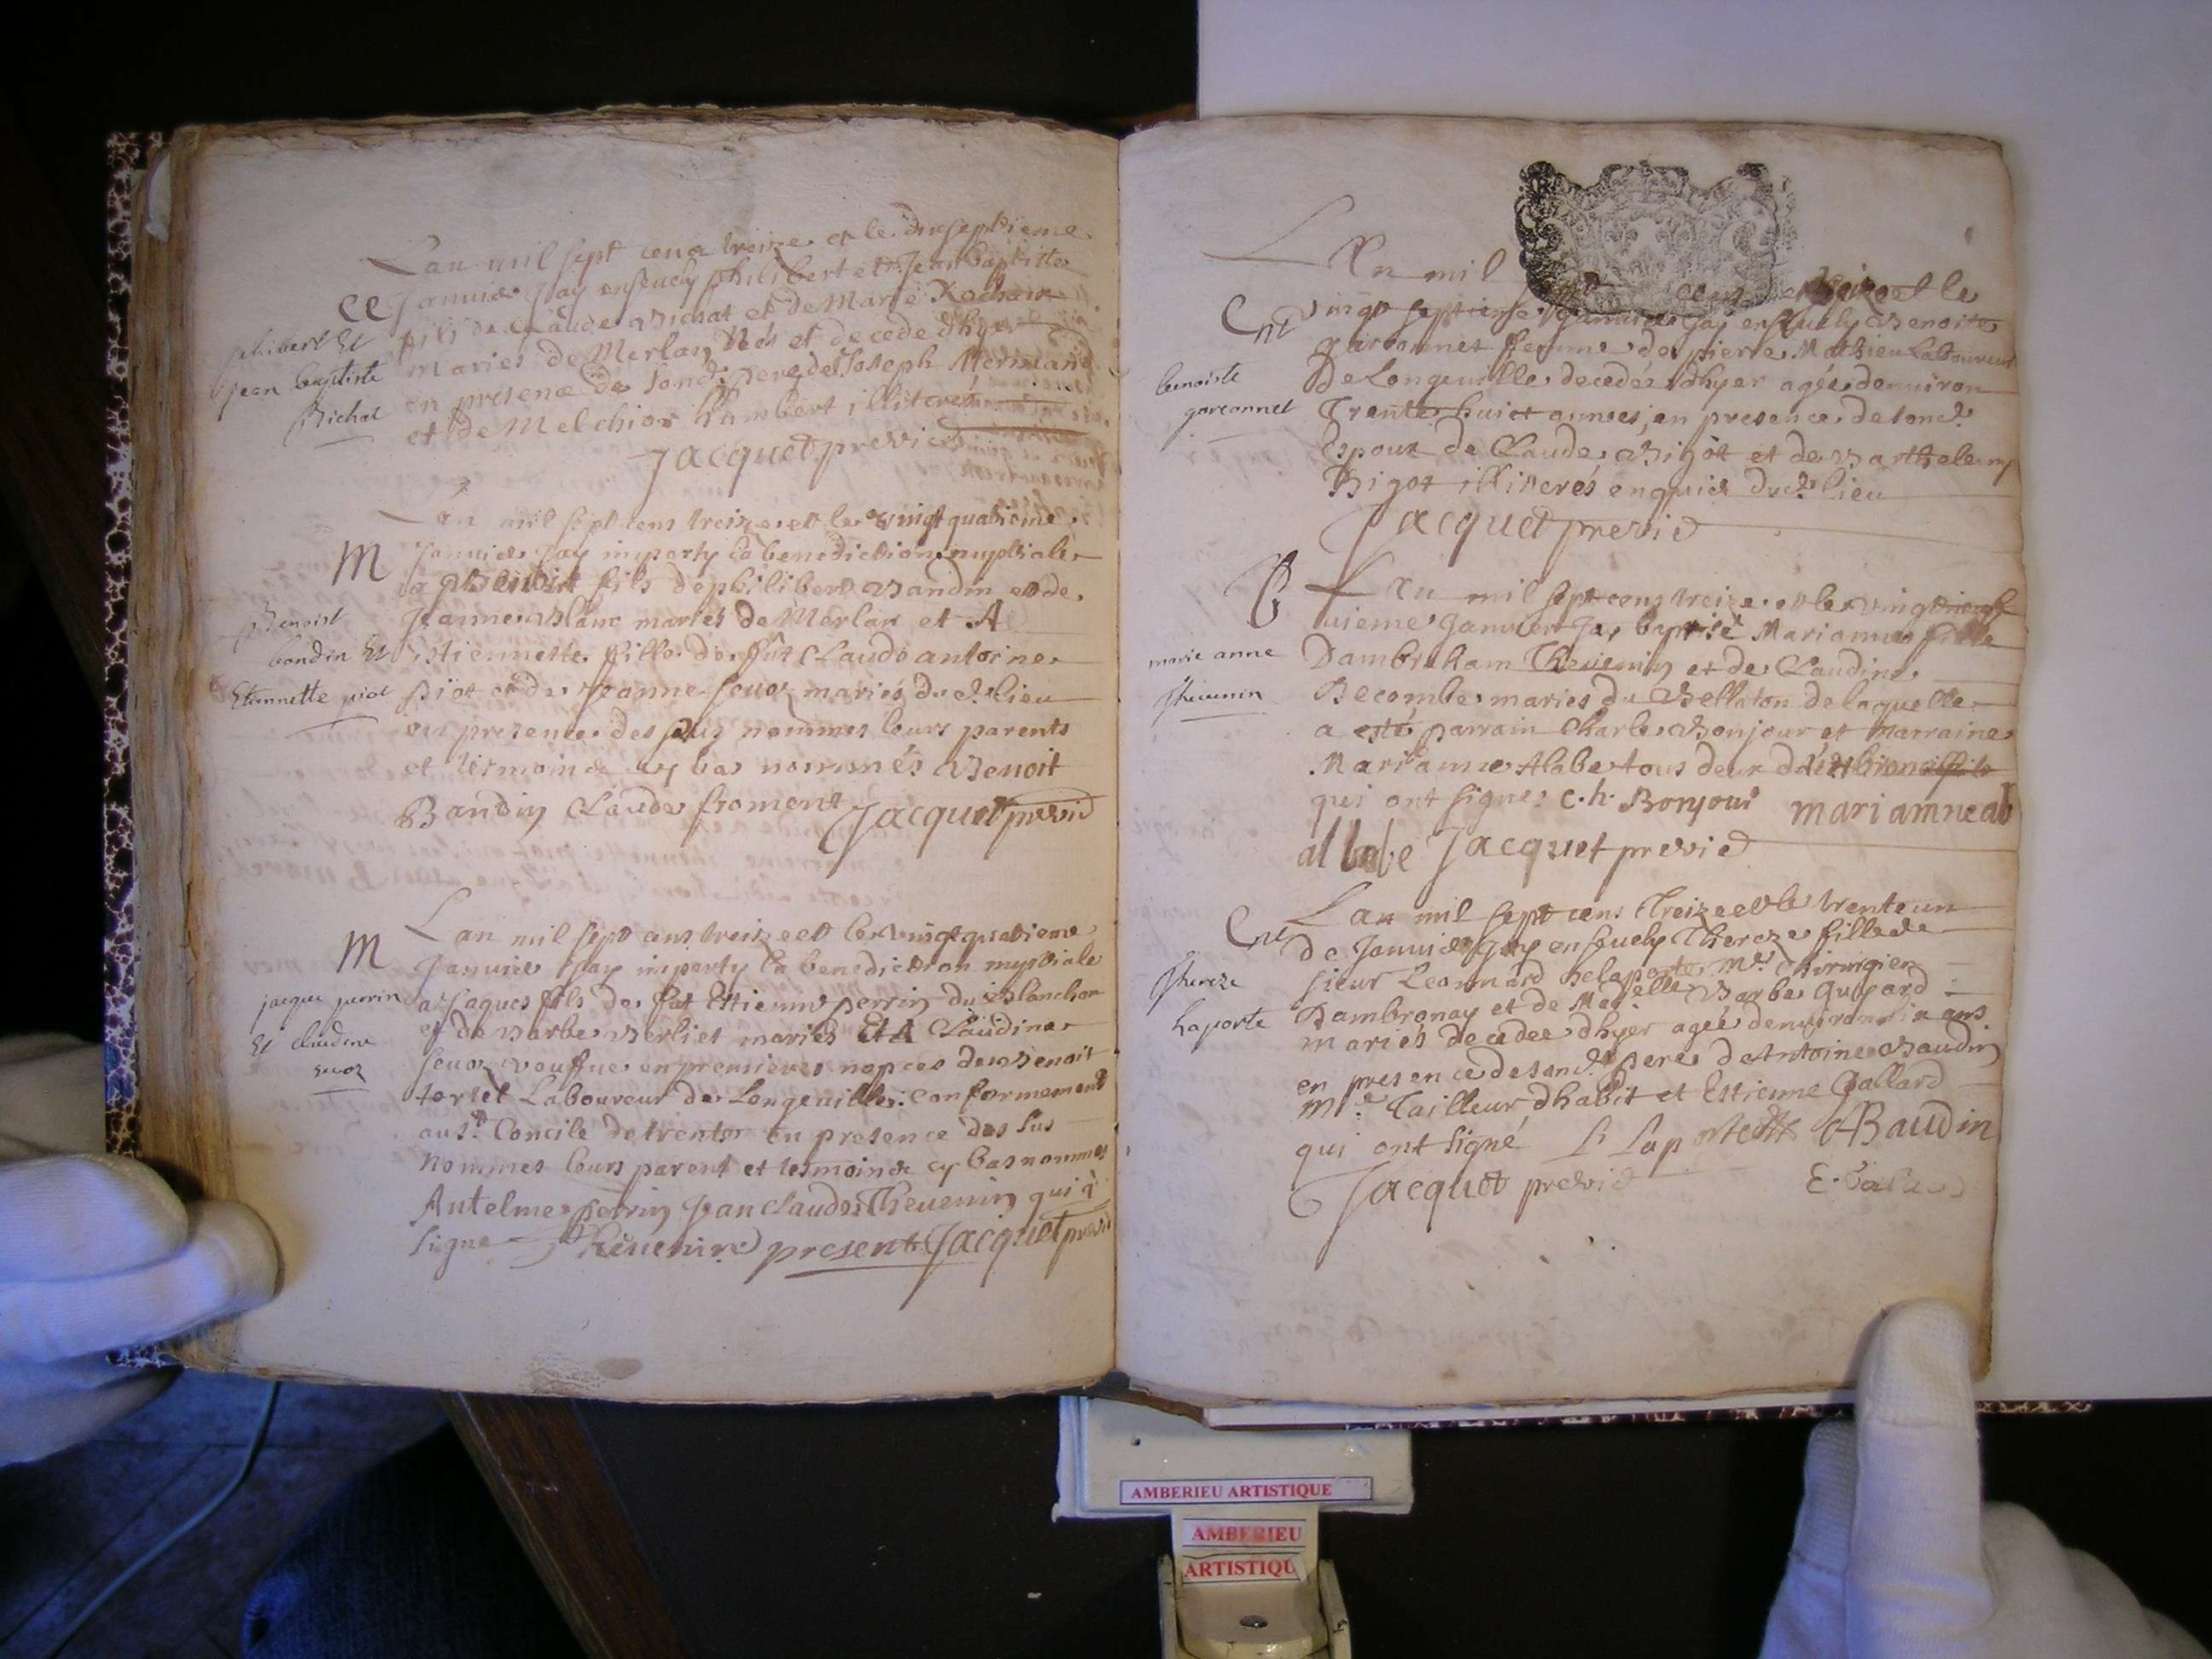 Lan mil sept cens treize et le dixseptieme
Janvier Jay ensevely philibert et Jean baptiste
fils de Claude Bichat et de Marie
maries de Merlan Nés et decede dhyer
en presence de sond. pere de Joseph Mermand
et de Melchior humbert illiterés
Jacquet previc
philibert Et
jean baptiste
Bichat
Lan mil sept cens treize et le vingt quatrieme
M
Janvier Jay imparty la benediction nuptiale
a Benoist fils de philibert Baudin et de
Jeanne Blanc mariés de Merlan et A
Estiennette fille de fût Claude antoine
piot et de Jeanne sevoz mariés dud. lieu
en presence des sus nommes leurs parents
et tesmoind cy bas nommés Benoit
Baudin Claude froment Jacquet previc
Benoist
baudin Et
Etiennette piot
Lan mil sept cens treize et le vingt quatrieme
M
Janvier Jay imparty la benediction nuptiale
a Jaques fils de fut Estienne perrin du Blanchon
et de Barbe Berliet mariés Et A Claudine
sevoz veuffue en premieres nopces de Benoit
tortet Laboureur de Longeville conformement
au st. Concile de trente en presence des sus
nommes leurs parent et tesmoind cy bas nommes
Antelme perrin Jean claude Thevenin qui à
signe Thevenin present Jacquet previc
jacque perrin
Et claudine
sevoz
LAn mil cens treize et le
Ent
vingt septieme Janvier Jay ensevely Benoite
garconnet femme de pierre Mathieu Laboureur
De Longeville decedée dhyer agée denviron
Trente huict années, en presence de sond.
Espoux de Claude Bigot et de Barthelemy
Bigot illiterés enquis dud. lieu
Jacquet previc
benoiste
garconnet
B
LAn mil sept cens treize et le vingt neuf
vieme Janvier Jay baptisé Marianne fille
Dambraham Thevenin et de Claudine
Decombe maries du Bellaton de laquelle
a esté parrain Charle Bonjour et marraine
Marianne Alabe tous deux
qui ont signe: c.h. Bonjour mariamne ab
allabe Jacquet previc
marie anne
thevenin
Lan mil sept cens Treize et le trente un
Ent
de Janvier Jay ensevely Thereze fille de
sieur Leonnard Delaporte Me. Chirurgien
Dambronay et de Madelle Barbe
mariés decedee dhyer agée denviron six ans
en presence de sond. pere de Antoine Baudin
Me. Tailleur dhabit et Estienne Gallard
qui ont signé L Laporte A Baudin
Jacquet previc
Thereze
Laporte
AMBERIEU ARTISTIQUE
AMBERIEU
ARTISTIQU